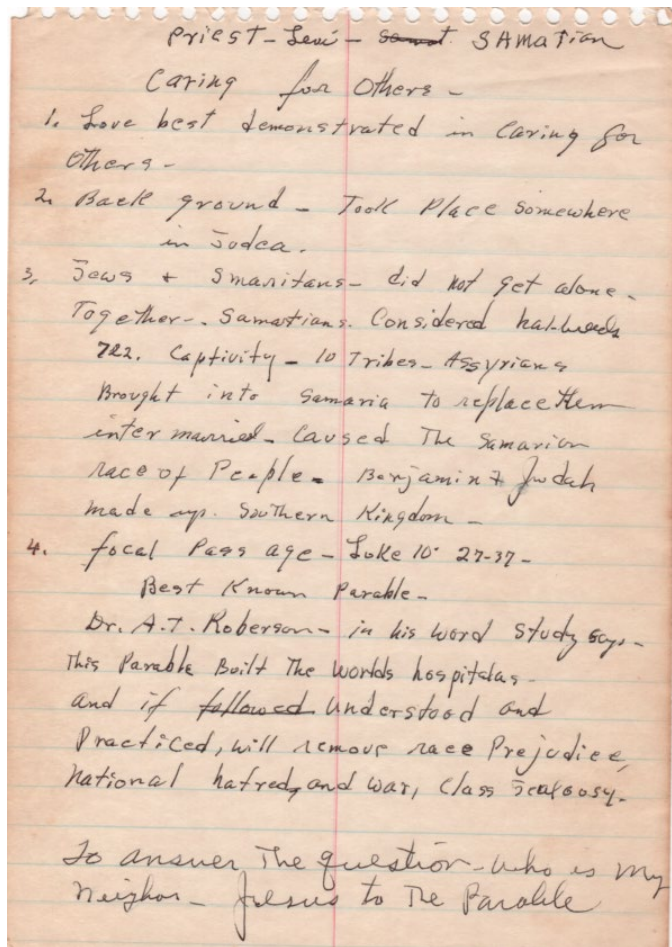 Priest - Levi - Samat. SAMATian
Caring for Others -
1. Love best demonstrated in Caring for
Others -
2. Back ground - Took Place Somewhere
in Jodea.
3. Jews + Smaritans - did not get alone -
Together -. Samartians. Considered hal-breeds
722. Captivity - 10 Tribes - Assyrians
Brought into Samaria to replace them
inter married - Caused The Samarion
race of People - Benjamin & Judah
made up. Southern Kingdom -
4. focal Pass age - Luke 10: 27-37 -
Best Known Parable -
Dr. A.T. Roberson - in his word Study says -
This Parable Built The worlds hospitalas -
and if followed Understood and
Practiced, will remove race Prejudice,
National hatred, and war, Class Jealoosy -
To answer The question - who is My
Neighor - Jesus to The Parable